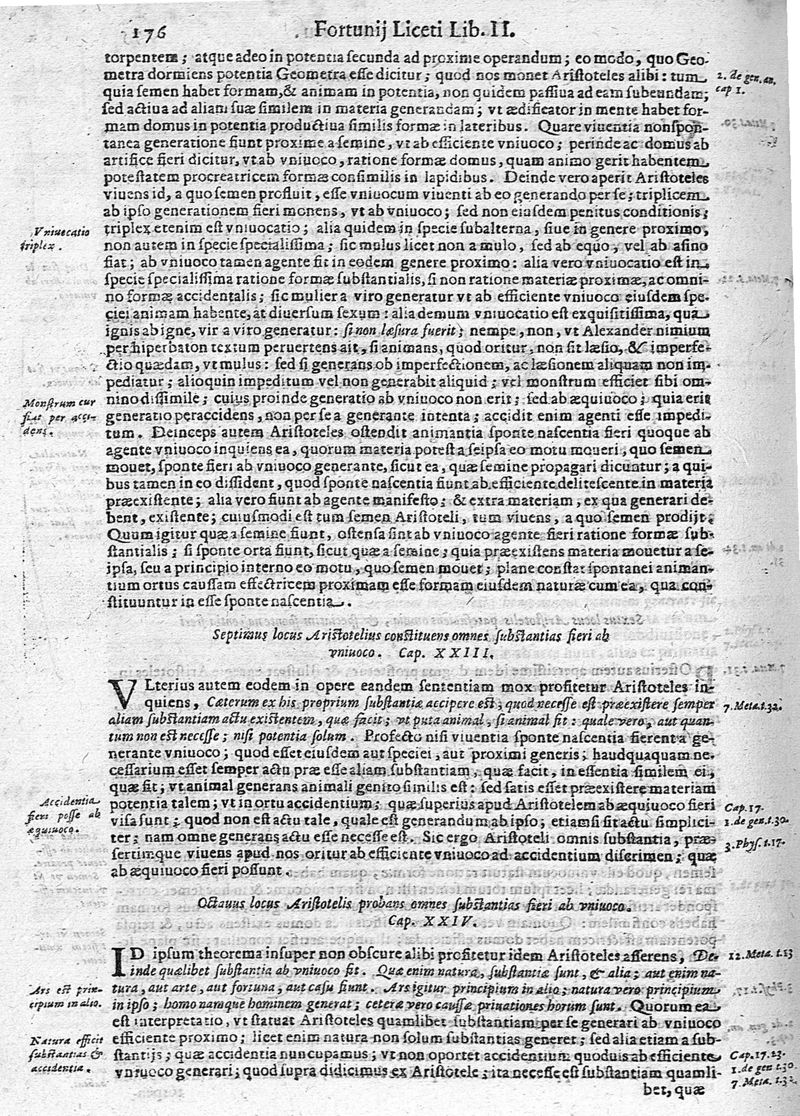 176 Fortunij Liceti Lib. II.
torpentem; atque adeo in potentia secunda ad proxime operandum; eo modo, quo Geo-
metra dormiens potentia Geometra esse dicitur; quod nos monet Aristoteles alibi: tum
2. de gen. an. cap 1.
quia semen habet formam, & animam in potentia, non quidem passiua ad eam subeundam;
sed actiua ad aliam suæ similem in materia generandam; vt ædificator in mente habet for-
mam domus in potentia productiua similis formæ in lateribus. Quare viuentia non spon-
tanea generatione fiunt proxime a semine, vt ab efficiente vniuoco; perinde ac domus ab
artifice fieri dicitur, vt ab vniuoco, ratione formæ domus, quam animo gerit habentem
potestatem procreatricem formæ consimilis in lapidibus. Deinde vero aperit Aristoteles
viuens id, a quo semen profluit, esse vniuocum viuenti ab eo generando per se; triplicem
ab ipso generationem fieri monens, vt ab vniuoco; sed non eiusdem penitus conditionis;
Vniuocatio triplex.
triplex etenim est vniuocatio; alia quidem in specie subalterna, siue in genere proximo,
non autem in specie specialissima; sic mulus licet non a mulo, sed ab equo, vel ab asino
fiat; ab vniuoco tamen agente fit in eodem genere proximo: alia vero vniuocatio est in
specie specialissima ratione formæ substantialis, si non ratione materiæ proximæ, ac omni-
no formæ accidentalis; sic mulier a viro generatur vt ab efficiente vniuoco eiusdem spe-
ciei animam habente, at diuersum sexum: alia demum vniuocatio est exquisitissima, qua
ignis ab igne, vir a viro generatur: si non læsura fuerit; nempe, non, vt Alexander nimium
per hiperbaton textum peruertens ait, si animans, quod oritur, non sit læsio, & imperfe-
ctio quædam, vt mulus: sed si generans ob imperfectionem, ac læsionem aliquam non im-
pediatur; alioquin impeditum vel non generabit aliquid; vel monstrum efficiet sibi om-
Monstrum cur fiat per accidens.
nino dissimile; cuius proinde generatio ab vniuoco non erit; sed ab æquiuoco; quia erit
generatio per accidens, non per se a generante intenta; accidit enim agenti esse impedi-
tum. Deinceps autem Aristoteles ostendit animantia sponte nascentia fieri quoque ab
agente vniuoco inquiens ea, quorum materia potest a seipsa eo motu moueri, quo semen
mouet, sponte fieri ab vniuoco generante, sicut ea, quæ semine propagari dicuntur; a qui-
bus tamen in eo dissident, quod sponte nascentia fiunt ab efficiente delitescente in materia
præexistente; alia vero fiunt ab agente manifesto; & extra materiam, ex qua generari de-
bent, existente; cuiusmodi est tum semen Aristoteli, tum viuens, a quo semen prodijt.
Quum igitur quæ a semine fiunt, ostensa sint ab vniuoco agente fieri ratione formæ sub-
stantialis; si sponte orta fiunt, sicut quæ a semine; quia præexistens materia mouetur a se-
ipsa, seu a principio interno eo motu, quo semen mouet; plane constat spontanei animan-
tium ortus caussam effectricem proximam esse formam eiusdem naturæ cum ea, qua con-
stituuntur in esse sponte nascentia.
Septimus locus Aristotelius constituens omnes substantias fieri ab
vniuoco. Cap. XXIII.
VLterius autem eodem in opere eandem sententiam mox profitetur Aristoteles in-
quiens, Cæterum ex his proprium substantiæ accipere est; quod necesse est præexistere semper
7. Meta. t. 32.
aliam substantiam actu existentem, quæ facit; vt puta animal, si animal fit: quale vero, aut quan-
tum non est necesse; nisi potentia solum. Profecto nisi viuentia sponte nascentia fierent a ge-
nerante vniuoco; quod esset eiusdem aut speciei, aut proximi generis; haudquaquam ne-
cessarium esset semper actu præesse aliam substantiam, quæ facit, in essentia similem ei,
quæ fit; vt animal generans animali genito simile est: sed satis esset præexistere materiam
Accidentia fieri posse ab æquiuoco.
potentia talem; vt in ortu accidentium; quæ superius apud Aristotelem ab æquiuoco fieri
Cap. 17.
visa sunt; quod non est actu tale, quale est generandum ab ipso; etiamsi sit actu simplici-
1. de gen. t. 30.
ter; nam omne generans actu esse necesse est. Sic ergo Aristoteli omnis substantia, præ-
3. Phys. t. 17.
sertimque viuens apud nos oritur ab efficiente vniuoco ad accidentium discrimen; quæ
ab æquiuoco fieri possunt.
Octauus locus Aristotelis probans omnes substantias fieri ab vniuoco.
Cap. XXIV.
ID ipsum theorema insuper non obscure alibi profitetur idem Aristoteles asserens, De-
12. Meta. t. 13
inde quælibet substantia ab vniuoco fit. Quæ enim natura, substantiæ sunt, & alia; aut enim na-
Ars est principium in alio.
tura, aut arte, aut fortuna, aut casu fiunt. Ars igitur principium in alio; natura vero principium
in ipso; homo namque hominem generat; ceteræ vero caussæ priuationes horum sunt. Quorum ea
est interpretatio, vt statuat Aristoteles quamlibet substantiam per se generari ab vniuoco
Natura efficit substantias & accidentia.
efficiente proximo; licet enim natura non solum substantias generet; sed alia etiam a sub-
stantijs; quæ accidentia nuncupamus; vt non oportet accidentium quoduis ab efficiente
Cap. 17. 23.
vniuoco generari; quod supra didicimus ex Aristotele; ita necesse est substantiam quamli-
1. de gen t. 30.
7. Meta. t. 32.
bet, quæ